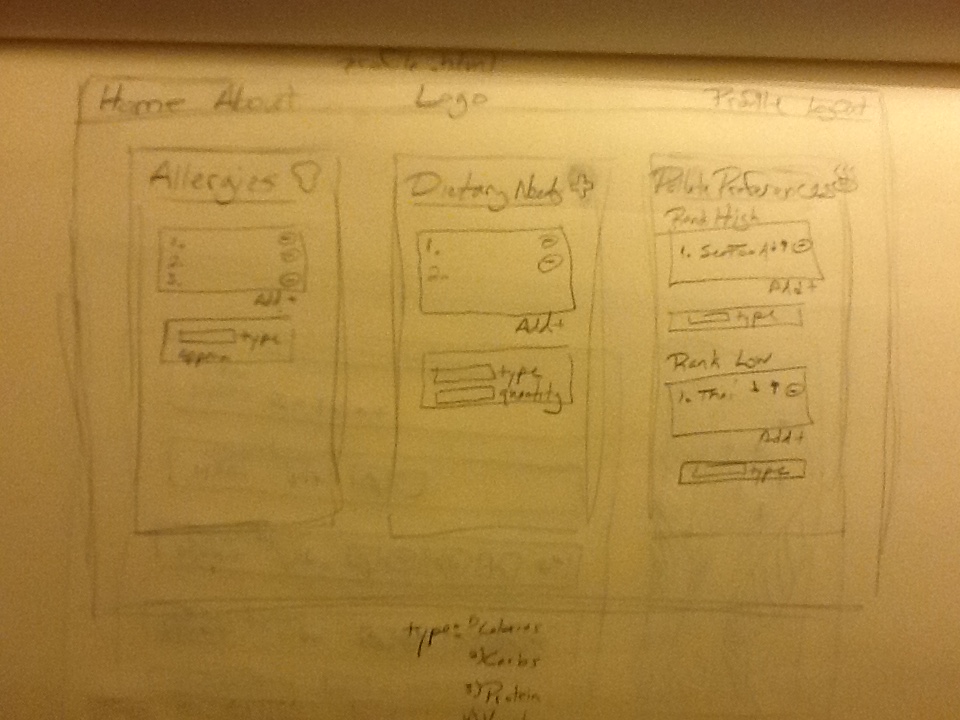 profile.html
Home About Logo Profile Logout
Allergies
1.
2.
3.
Add+
type
Dietary Needs
1.
2.
Add+
type
quantity
Pallate Preferences
Rank High
1.
Add+
type
Rank Low
1. Thai
Add+
type
type: 1) Calories
2) Carbs
3) Protein